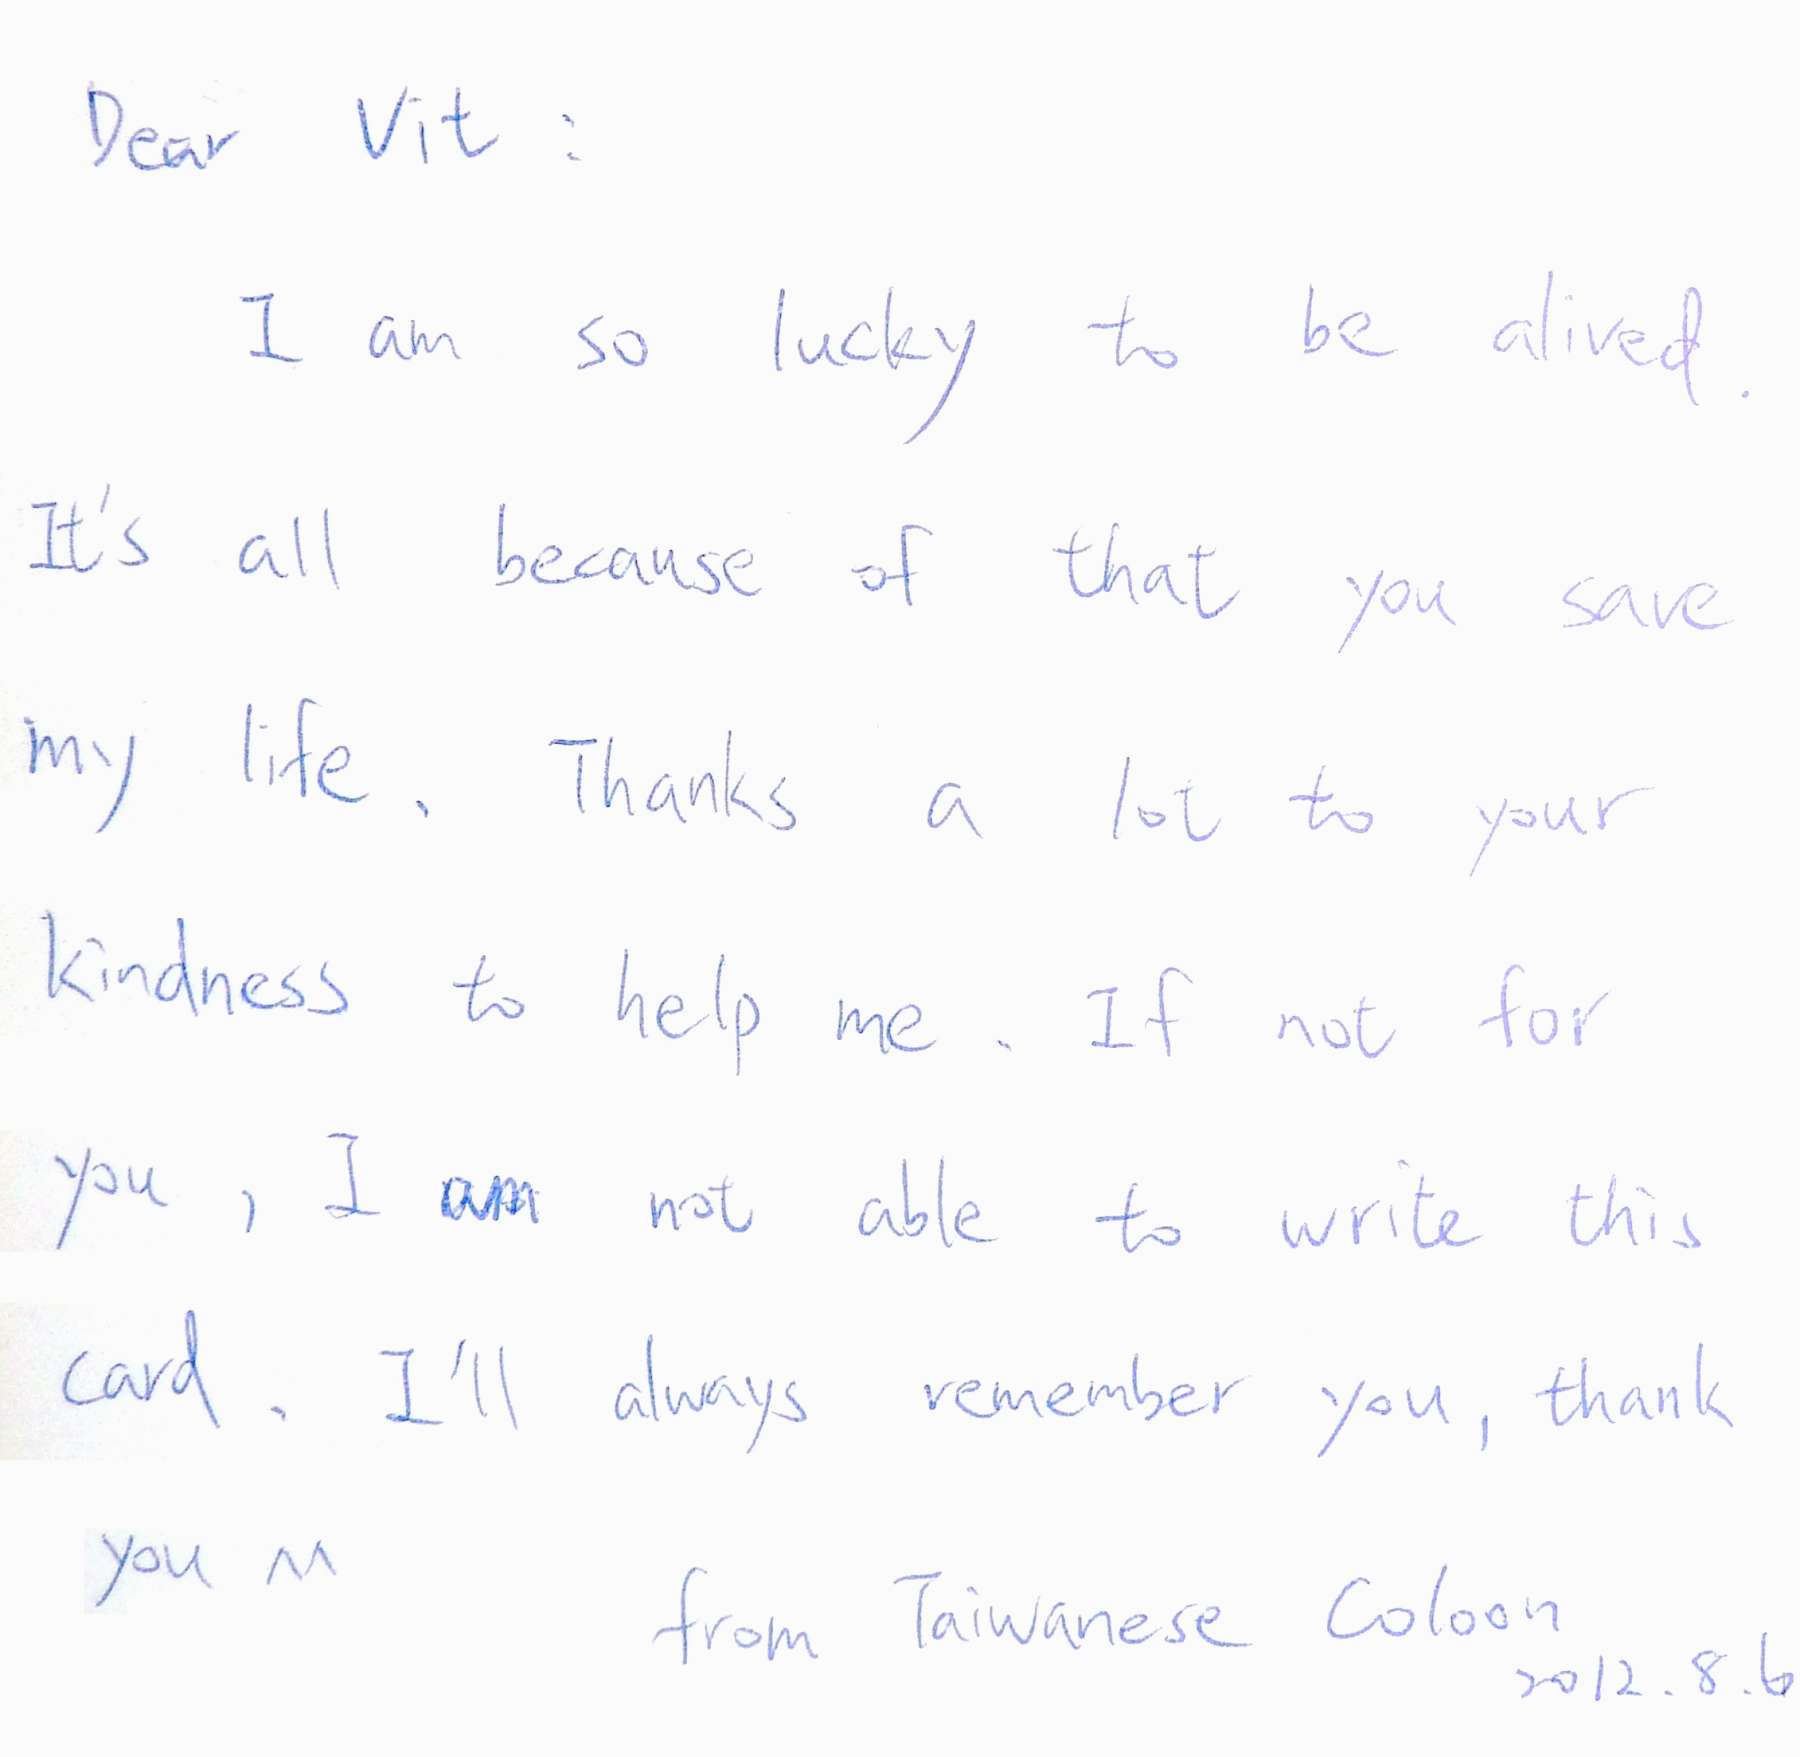 Dear Vit:
I am so lucky to be alived.
It's all because of that you save
my life. Thanks a lot to your
kindness to help me. If not for
you, I am not able to write this
card. I'll always remember you, thank
you ^^
from Taiwanese Coloon
2012.8.6